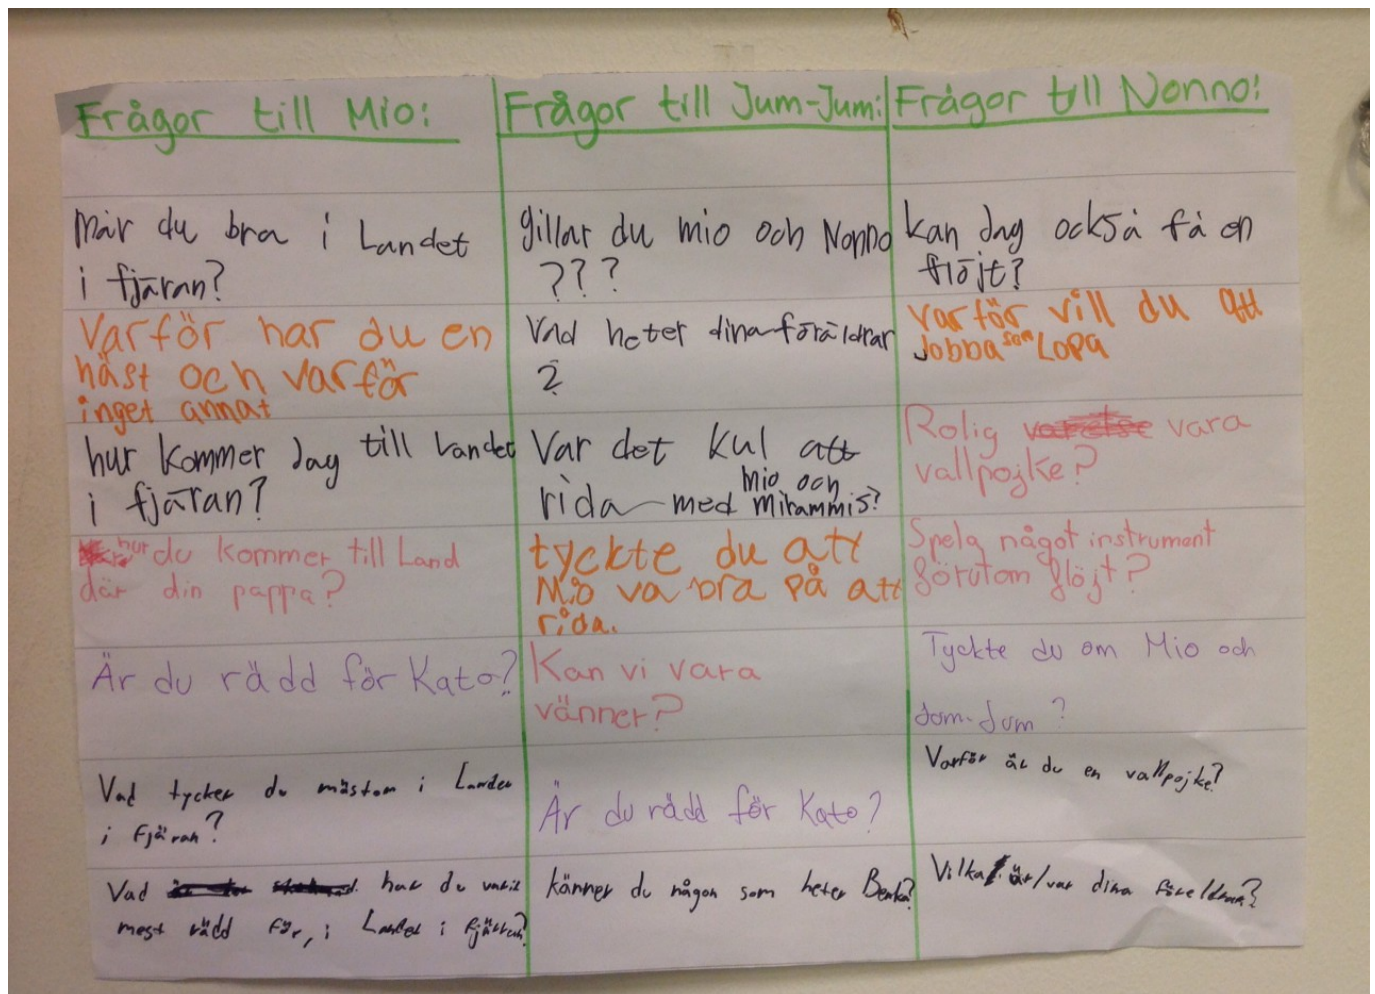 Frågor till Mio:
Mår du bra i Landet
i fjäran?
Varför har du en
häst och varför
inget annat
hur kommer Jag till Landet
i fjäran?
hur du kommer till Land
där din pappa?
Är du rädd för Kato?
Vad tycker du mästom i Landet
i Fjäran?
Vad har du varit
mest rädd för, i Landet i fjärran?
Frågor till Jum-Jum:
gillar du mio och Nonno
???
Vad heter dina föräldrar
?
Var det kul att
rida med mio och
mirammis?
tyckte du att
Mio va bra på att
rida.
Kan vi vara
vänner?
Är du rädd för Kato?
känner du någon som heter Benka?
Frågor till Nonno:
kan Jag också få en
flöjt?
varför vill du att
Jobba som Lopa
Rolig vara
vallpojke?
Spela något instrument
förutom flöjt?
Tyckte du om Mio och
Jom-Jom?
Varför är du en vallpojke?
Vilka är/var dina föreldrar?